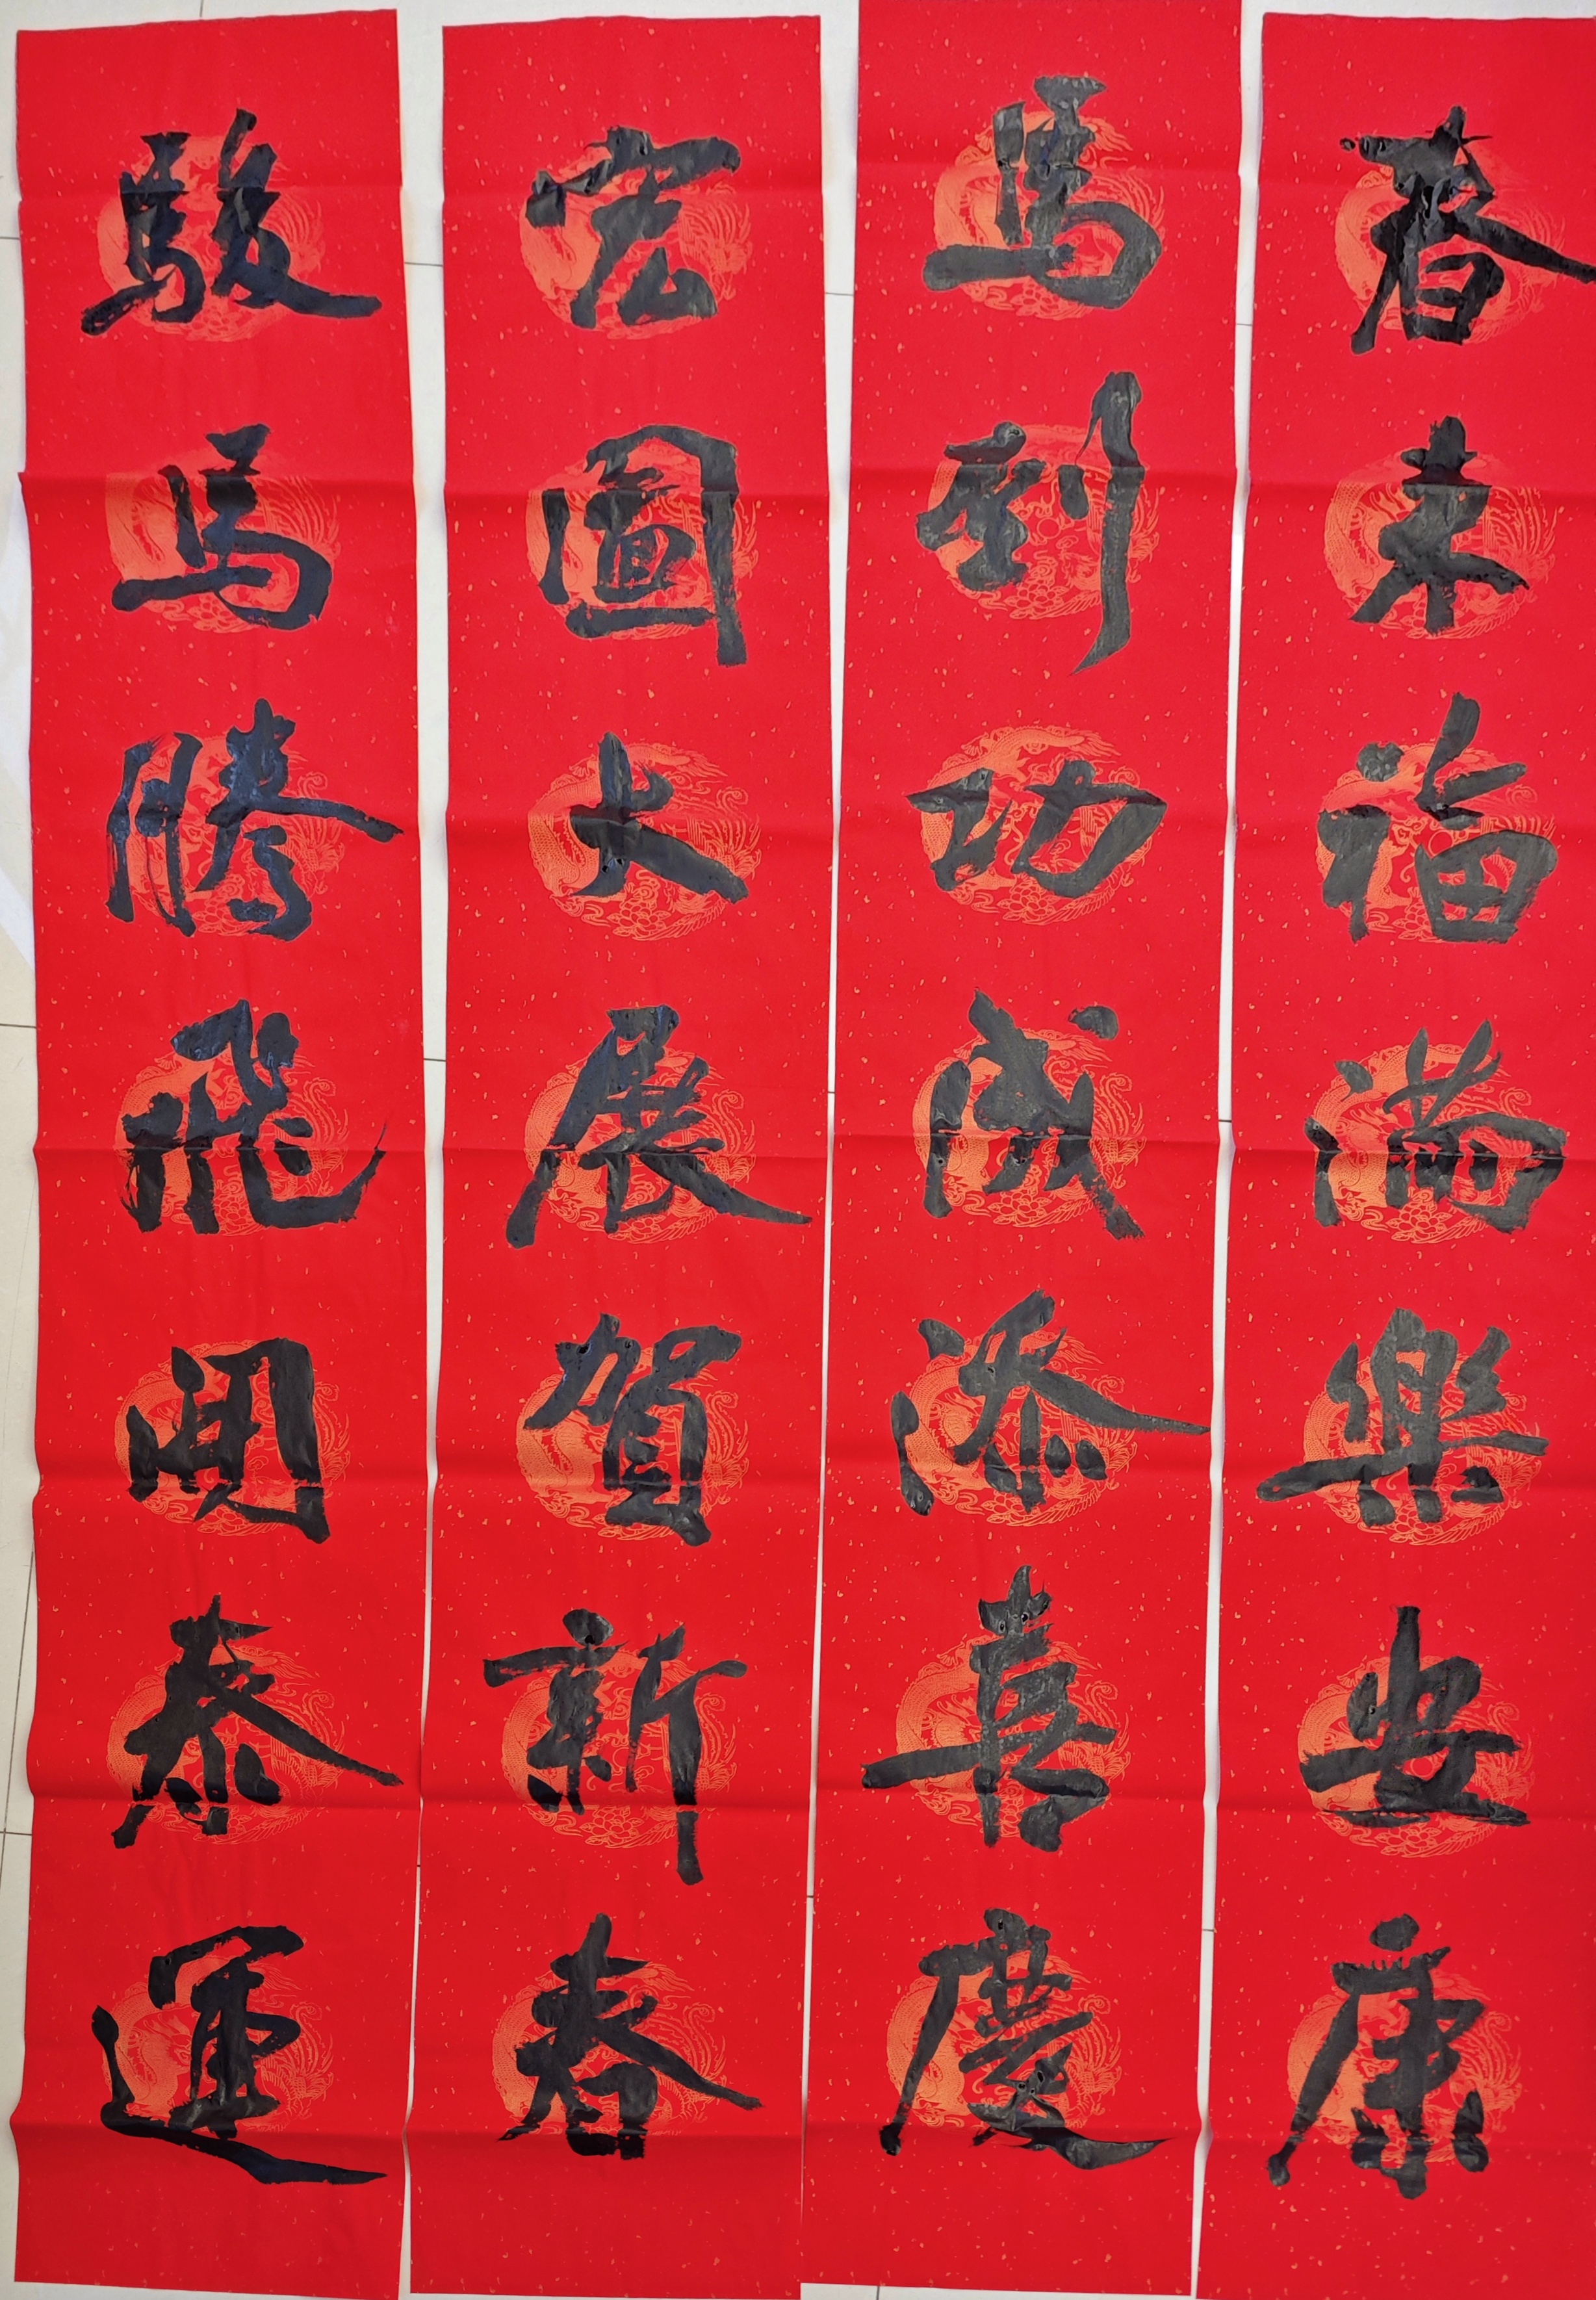 春来福满樂安康
馬到功成添喜慶
宏圖大展賀新春
駿馬騰飛開泰運